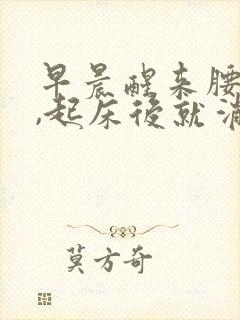 早晨醒来腰
,起床后就消
莫方奇